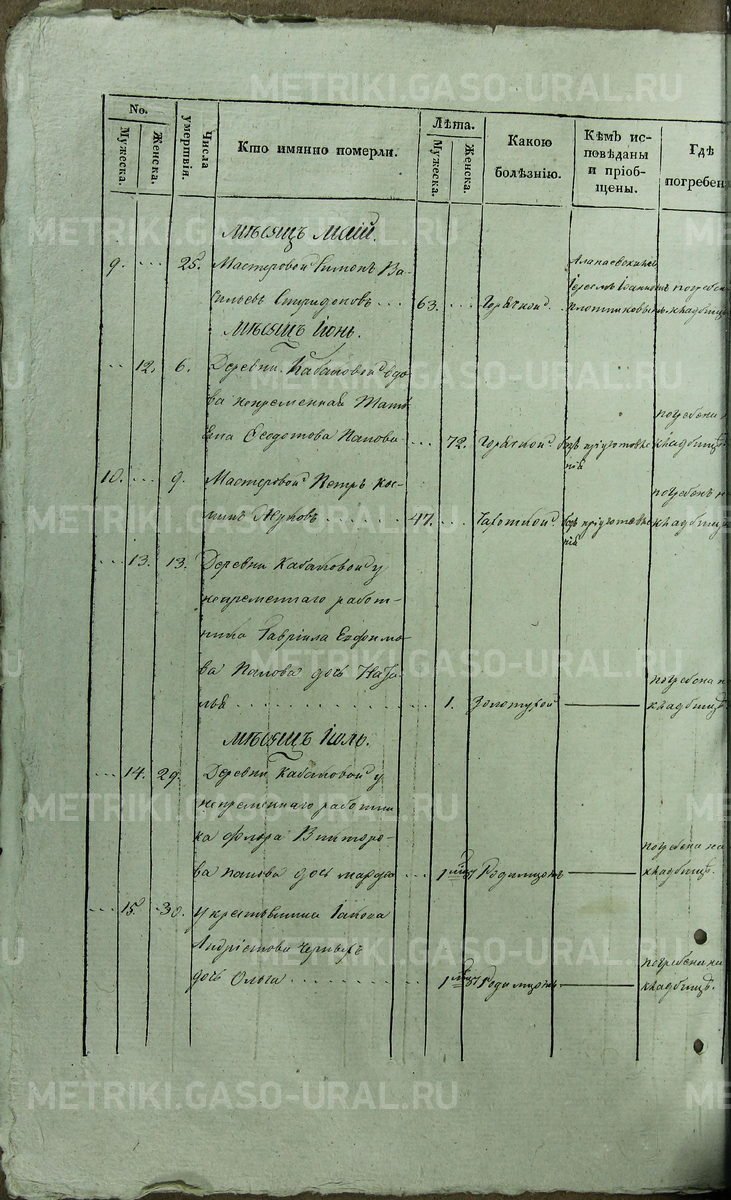 No.
Лѣта.
Мужеска.
Женска.
Числа умертвія.
Кто имянно померли.
Мужеска.
Женска.
Какою болѣзнію.
Кѣмъ исповѣданы и пріобщены.
Гдѣ погребен
мѣсяцъ маій.
9. ... 25. Мастеровой Симонъ Ва-
сильевъ Спиридоновъ ... 63. ... горячкой.
мѣсяцъ Іюнь.
... 12. 6. Деревни Кабаковой вдо-
ва непременная Тать
яна Ѳеодотова Попова ... 72. горячкой безъ пріуготовле
ній
погребена н
кладбищѣ.
10. ... 9. Мастеровой Петръ Кос-
минъ Жуковъ ... 47. ... чахоткой безъ пріуготовле
ній
погребенъ н
кладбищѣ
... 13. 13. Деревни Кабаковой у
непременнаго работ-
ника Гавріила Евфимо-
ва Попова дочь Ната-
лья ... 1. золотухой
погребена н
кладбищѣ.
мѣсяцъ Іюль.
... 14. 29. Деревни Кабаковой у
непременнаго работни
ка Флора Викторо-
ва Попова дочь Марѳа ... родимцомъ
погребена на
кладбищѣ.
... 15. 30. у
Черныхъ
дочь Ольга ... родимцомъ
погребена на
кладбищѣ.
METRIKI.GASO-URAL.RU